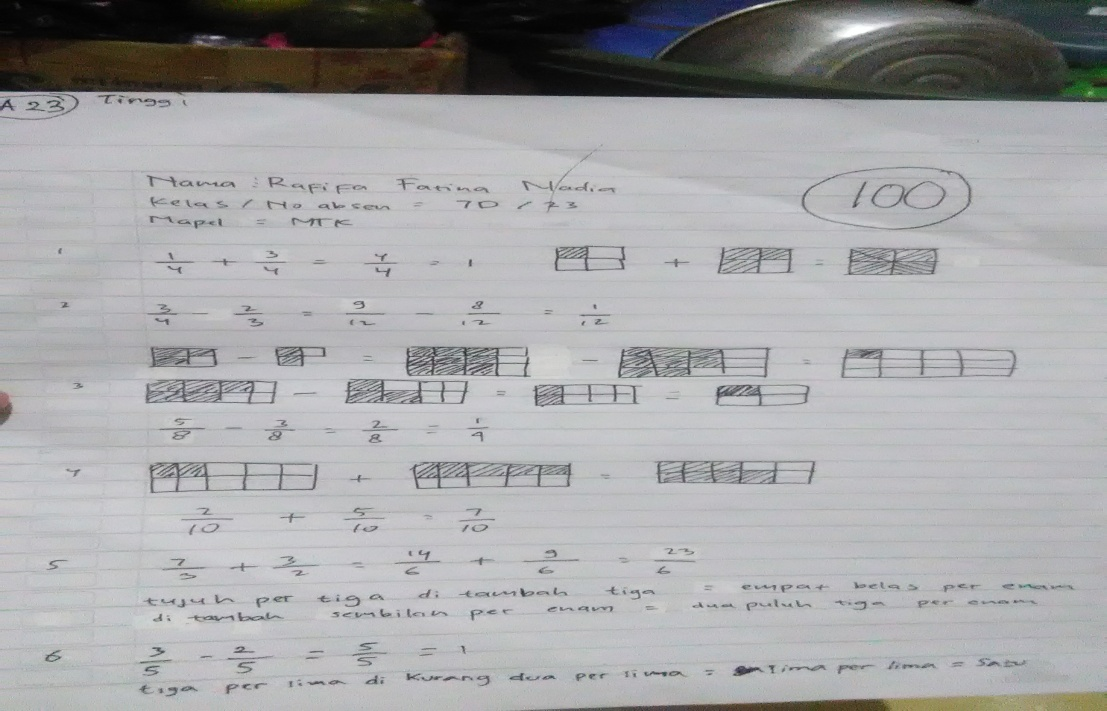 A 23 Tinggi
Nama : Rafifa Fatina Nadia
Kelas / No absen = 7D / 23
Mapel = MTK
100
1 1/4 + 3/4 = 4/4 = 1 + =
2 3/4 - 2/3 = 9/12 - 8/12 = 1/12
- = - =
3 - = =
5/8 - 3/8 = 2/8 = 1/4
4 + =
2/10 + 5/10 = 7/10
5 7/3 + 3/2 = 14/6 + 9/6 = 23/6
tujuh per tiga di tambah tiga = empat belas per enam
di tambah sembilan per enam = dua puluh tiga per enam
6 3/5 - 2/5 = 5/5 = 1
tiga per lima di kurang dua per lima = lima per lima = satu